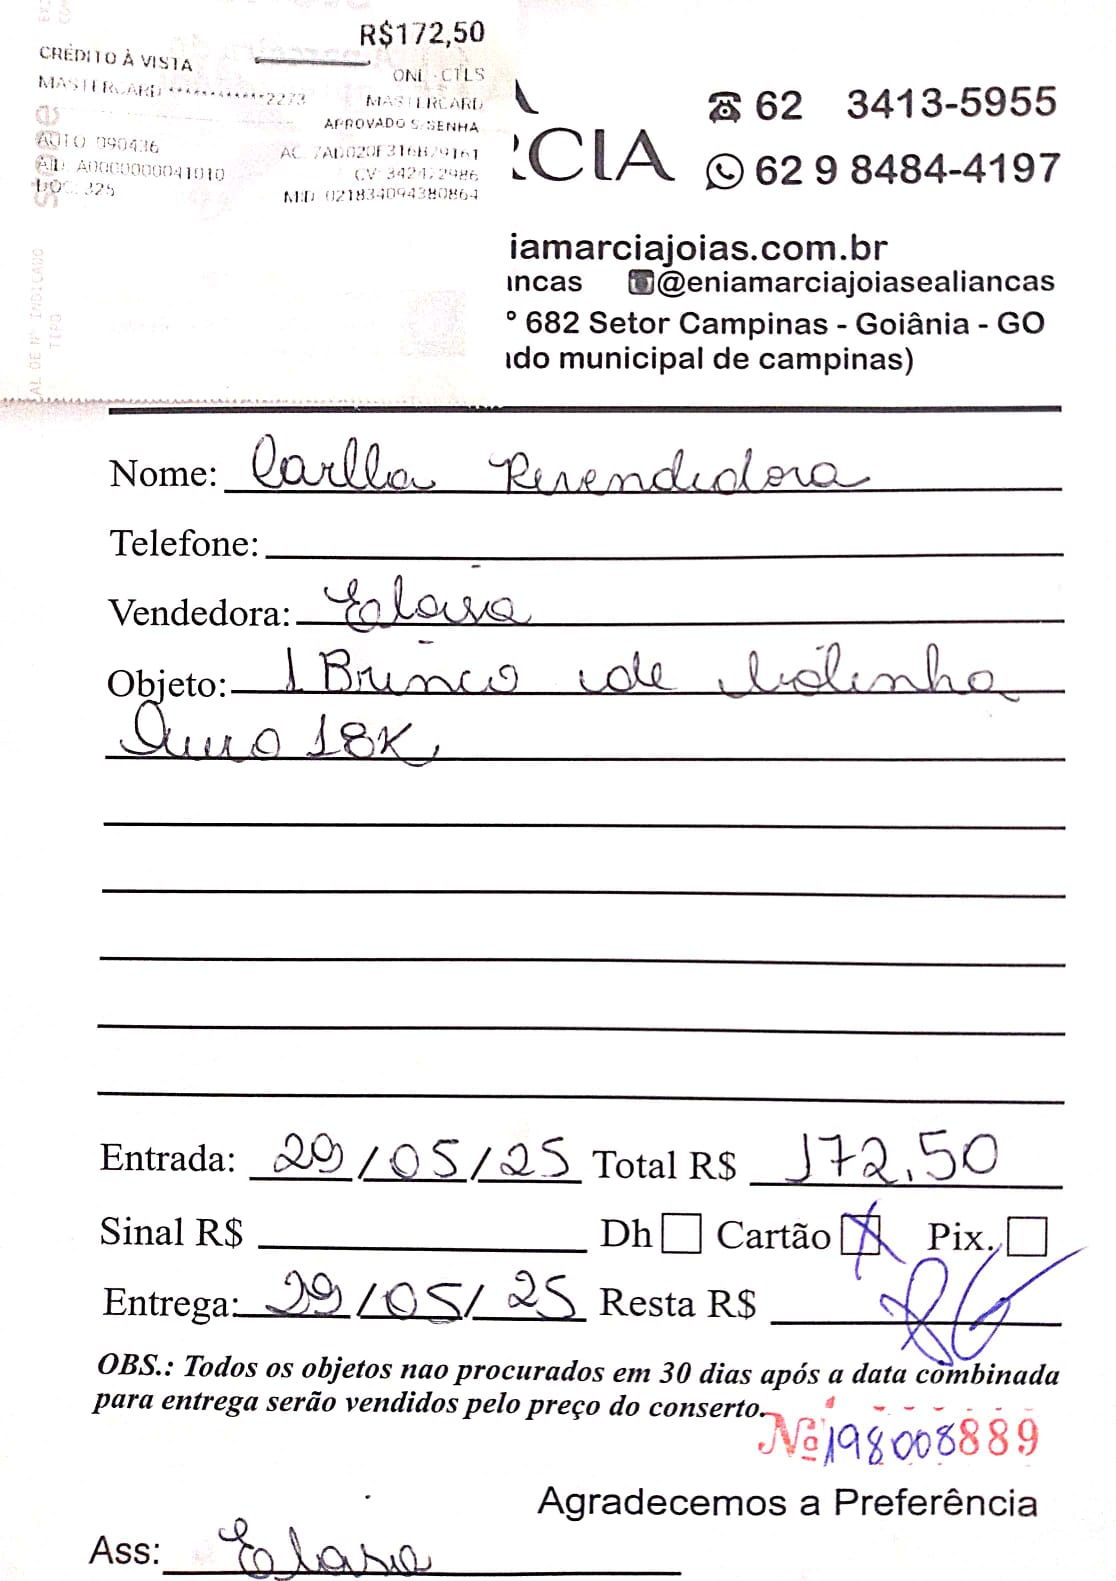 R$172,50
CRÉDITO À VISTA
ONL-CTLS
MASTERCARD ************2273
MASTERCARD
APROVADO S/SENHA
AUTO 090436
AID: A0000000041010
DOC: 325
MID: 021834094380864
62 3413-5955
CIA
62 9 8484-4197
iamarciajoias.com.br
ncas @eniamarciajoiasealiancas
º 682 Setor Campinas - Goiânia - GO
do municipal de campinas)
AL DE Nº INDICADO
TIPO
Nome: Carlla Revendedora
Telefone:
Vendedora:
Objeto: 1 Brinco de bolinha
Ouro 18K
Entrada: 29/05/25 Total R$ 172,50
Sinal R$ Dh Cartão X Pix.
Entrega: 29/05/25 Resta R$
OBS.: Todos os objetos nao procurados em 30 dias após a data combinada
para entrega serão vendidos pelo preço do conserto.
Nº 198008889
Agradecemos a Preferência
Ass: